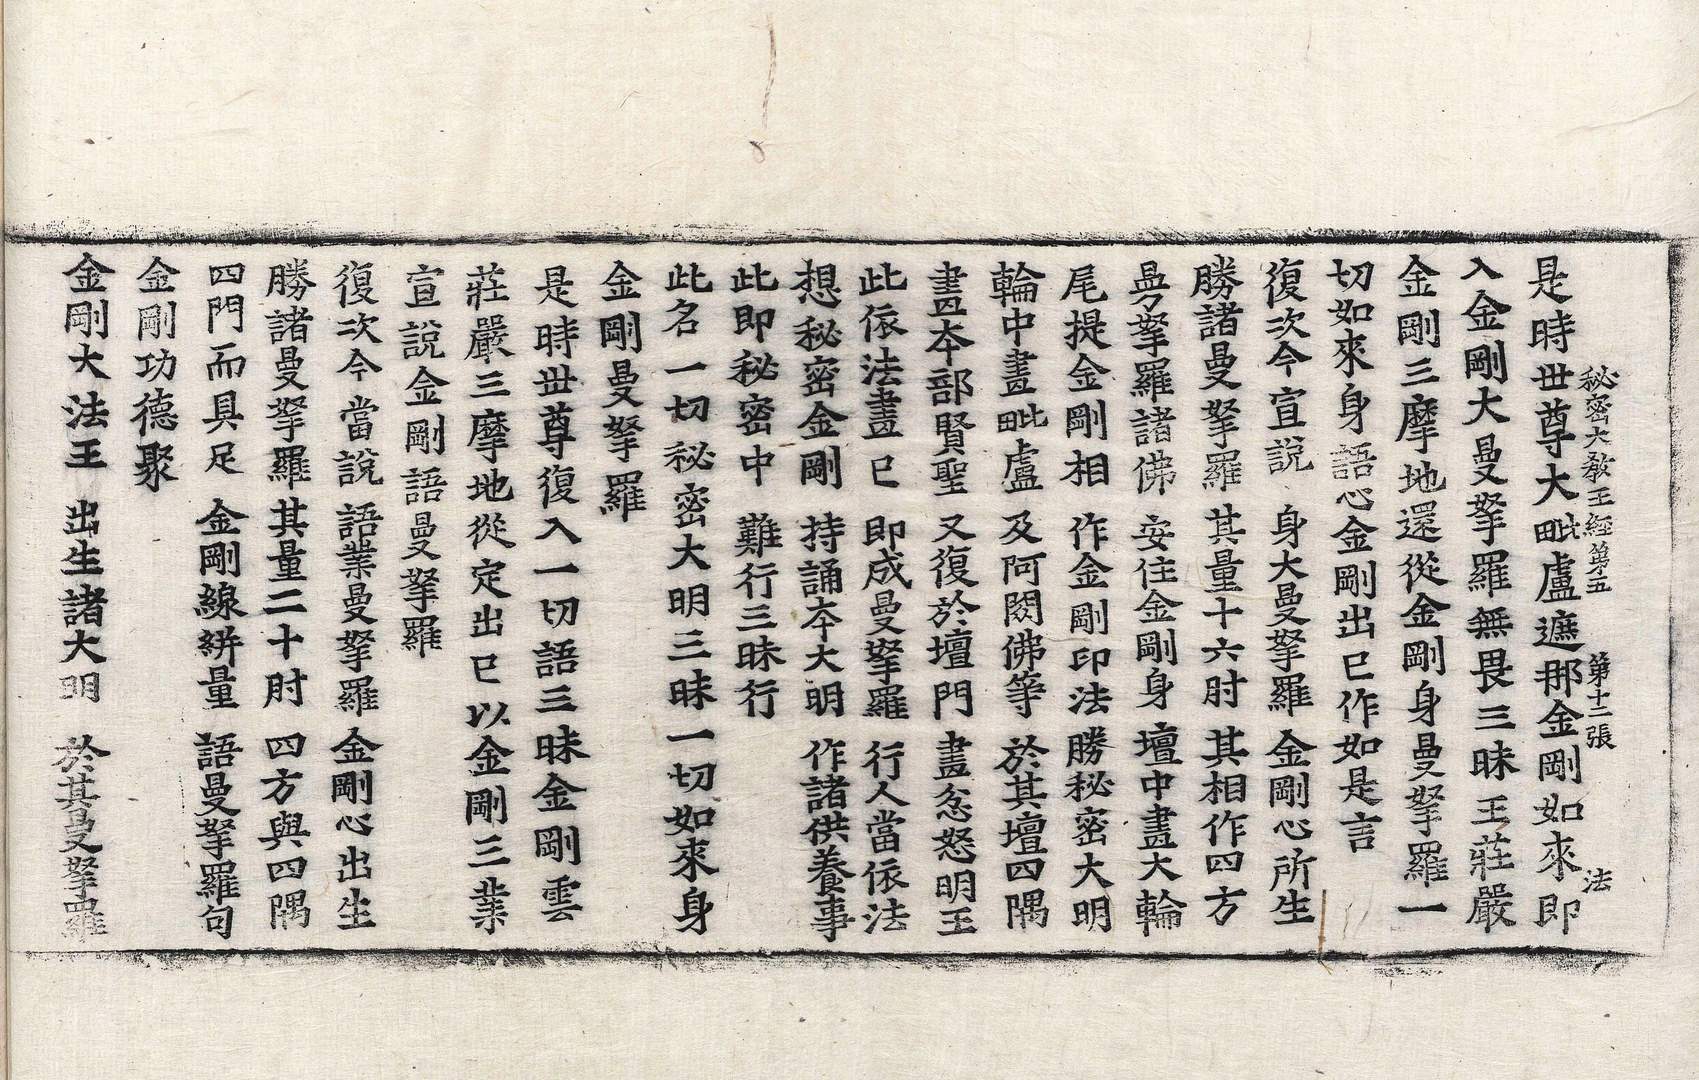 秘密大教王經第五 第十二張 法
是時世尊大毗盧遮那金剛如來即
入金剛大曼拏羅無畏三昧王莊嚴
金剛三摩地還從金剛身曼拏羅一
切如來身語心金剛出已作如是言
復次今宣說 身大曼拏羅 金剛心所生
勝諸曼拏羅 其量十六肘 其相作四方
曼拏羅諸佛 安住金剛身 壇中畫大輪
尾提金剛相 作金剛印法 勝秘密大明
輪中畫毗盧 及阿閦佛等 於其壇四隅
畫本部賢聖 又復於壇門 畫忿怒明王
此依法畫已 即成曼拏羅 行人當依法
想秘密金剛 持誦本大明 作諸供養事
此即秘密中 難行三昧行
此名一切秘密大明三昧一切如來身
金剛曼拏羅
是時世尊復入一切語三昧金剛雲
莊嚴三摩地從定出已以金剛三業
宣說金剛語曼拏羅
復次今當說 語業曼拏羅 金剛心出生
勝諸曼拏羅 其量二十肘 四方與四隅
四門而具足 金剛線絣量 語曼拏羅句
金剛功德聚
金剛大法王 出生諸大明 於其曼拏羅